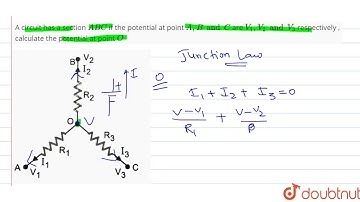 A circuit has a section ABC if the potential at point A, B and C are V₁, V₂ and V₃ respectively,
calculate the potential at point O
Junction Law
B V₂
I₂
I
R₂
O V
R₁
R₃
I₁
I₃
A
V₁
V₃
C
I₁ + I₂ + I₃ = 0
V-V₁ / R₁ + V-V₂ / R
doubtnut